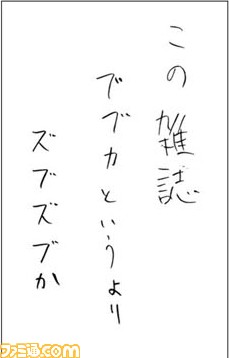 この雑誌
ブブカというより
ズブズブか
ファミ通.com